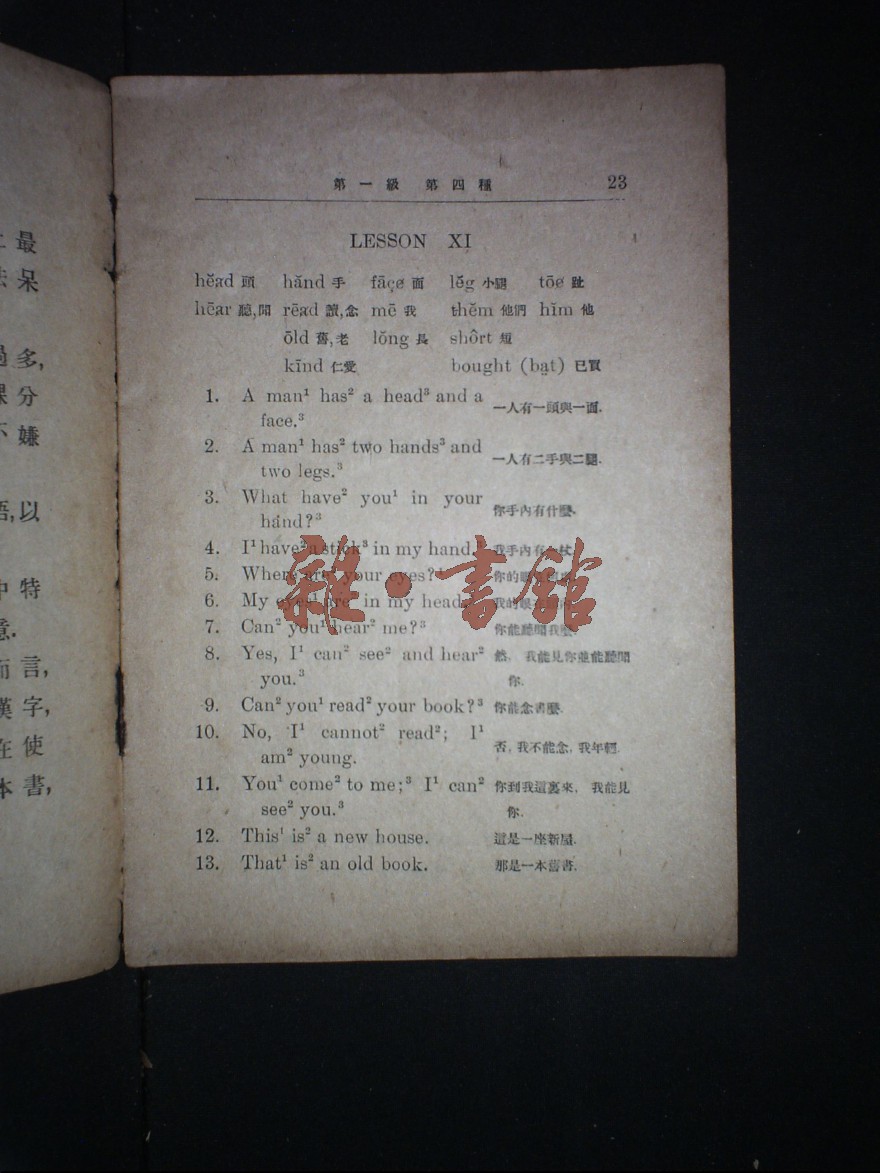 最
呆
多,
分
嫌
以
特
意.
言,
漢字,
在使
本書,
第一級 第四種 23
LESSON XI
hĕad 頭 hănd 手 fāce 面 lĕg 小腿 tōe 趾
hēar 聽,聞 rēad 讀,念 mē 我 thĕm 他們 hĭm 他
ōld 舊,老 lŏng 長 shôrt 短
kīnd 仁愛 bought (ba̤t) 已買
1. A man¹ has² a head³ and a 一人有一頭與一面.
face.³
2. A man¹ has² two hands³ and 一人有二手與二腿.
two legs.³
3. What have² you¹ in your 你手內有什麼.
hand?³
4. I¹ have² a stick³ in my hand. 我手內有 杖.
5. Where are² your eyes?¹ 你的眼
6. My eyes¹ are² in my head. 我的眼在
7. Can² you¹ hear² me?³ 你能聽聞我麼.
8. Yes, I¹ can² see² and hear² 然, 我能見你並能聽聞
you.³ 你.
9. Can² you¹ read² your book?³ 你能念書麼.
10. No, I¹ cannot² read²; I¹ 否, 我不能念, 我年輕.
am² young.
11. You¹ come² to me;³ I¹ can² 你到我這裏來, 我能見
see² you.³ 你.
12. This¹ is² a new house. 這是一座新屋.
13. That¹ is² an old book. 那是一本舊書.
雜·書館